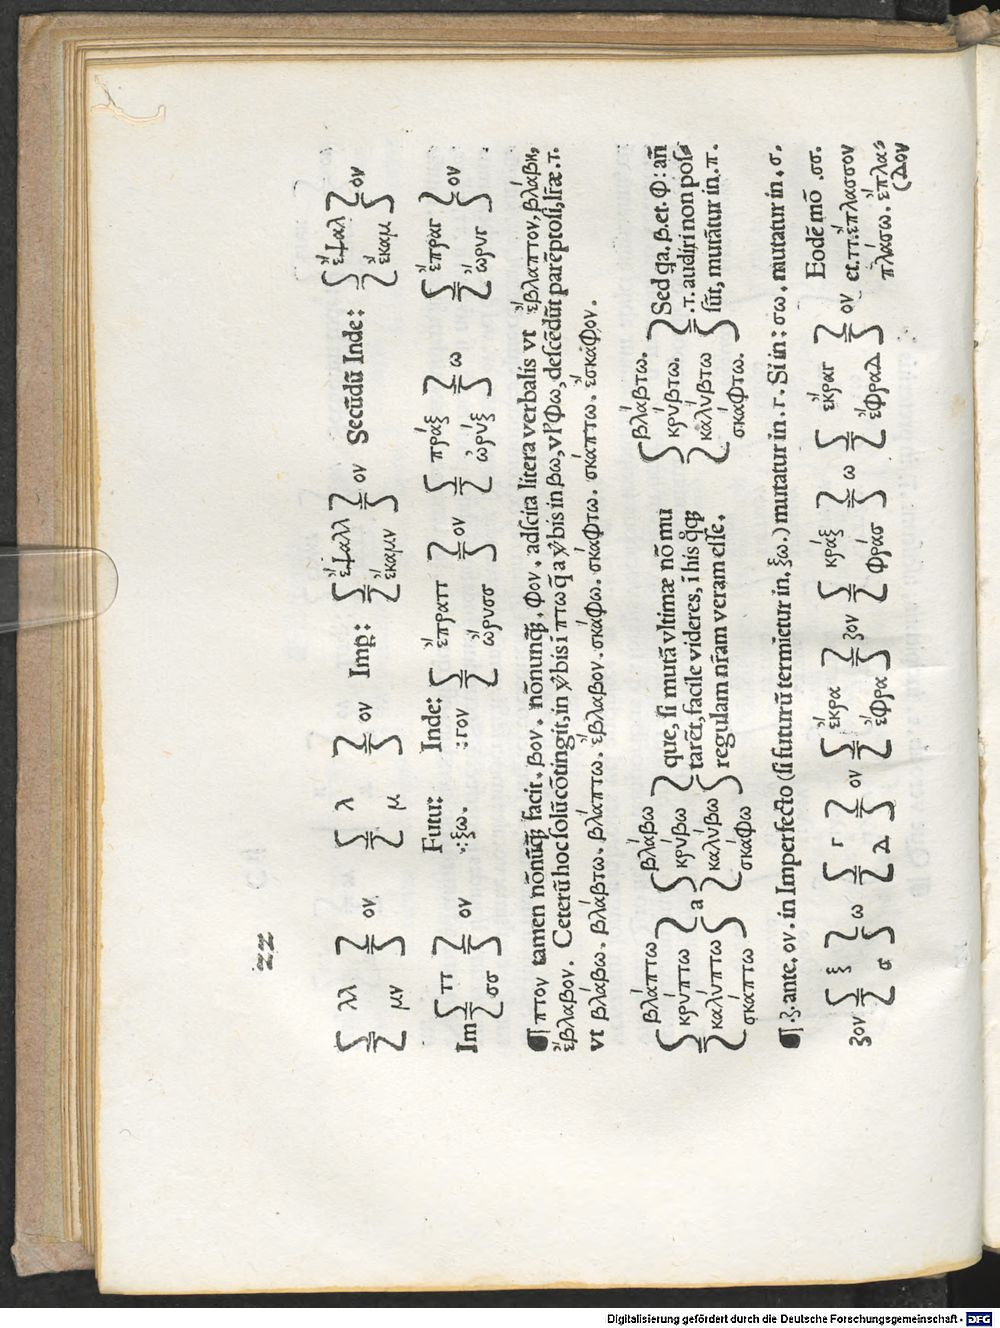 λλ ον λ ον Imꝑ: ἔψαλλ ον Secūdū Inde: ἔψαλ ον
μν μ ἔκαμν ἔκαμ
Im ππ ον Futur: Inde: ἔπραττ ον πράξ ω ἔπραγ ον
σσ :ξω. :γον ὤρυσσ ὠρύξ ὤρυγ
¶ πτον tamen nōnūq̄ꝫ facit. βον. nōnunq̄ꝫ. φον. adſcita litera verbalis vt ἔβλαπτον, βλάβη,
ἔβλαβον. Ceterū hoc ſolū cōtingit, in v̄bis ī πτω q̄ a v̄bis in βω, vl' φω, deſcēdūt parēptoſi, līræ. τ.
vt βλάβω. βλάβτω. βλάπτω. ἔβλαβον. σκάφω. σκάφτω. σκάπτω. ἔσκαφον.
βλάπτω βλάβω que, ſi mutā vltimæ nō mu βλάβτω. Sed q̄a. β. et. φ: añ
κρύπτω a κρύβω tarēt, facile videres, ī his q̊q̄ꝫ κρύβτω. .τ. audiri non poſſ
καλύπτω καλύβω regulam nr̄am veram eſſe. καλύβτω ſūt, mutātur in. π.
σκάπτω σκάφω σκάφτω.
¶ .ζ. ante, ον. in Imperfecto (ſi futurū termīetur in, ξω.) mutatur in. γ. Si in: σω. mutatur in. σ.
ζον ξ ω γ ον ἔκρα ζον κράξ ω ἔκραγ ον Eodē mō .σσ.
σ Δ ἔφρα φράσ ἔφραΔ et. ττ: ἔπλασσον
πλάσω. ἔπλας
(Δον
Digitalisierung gefördert durch die Deutsche Forschungsgemeinschaft - DFG